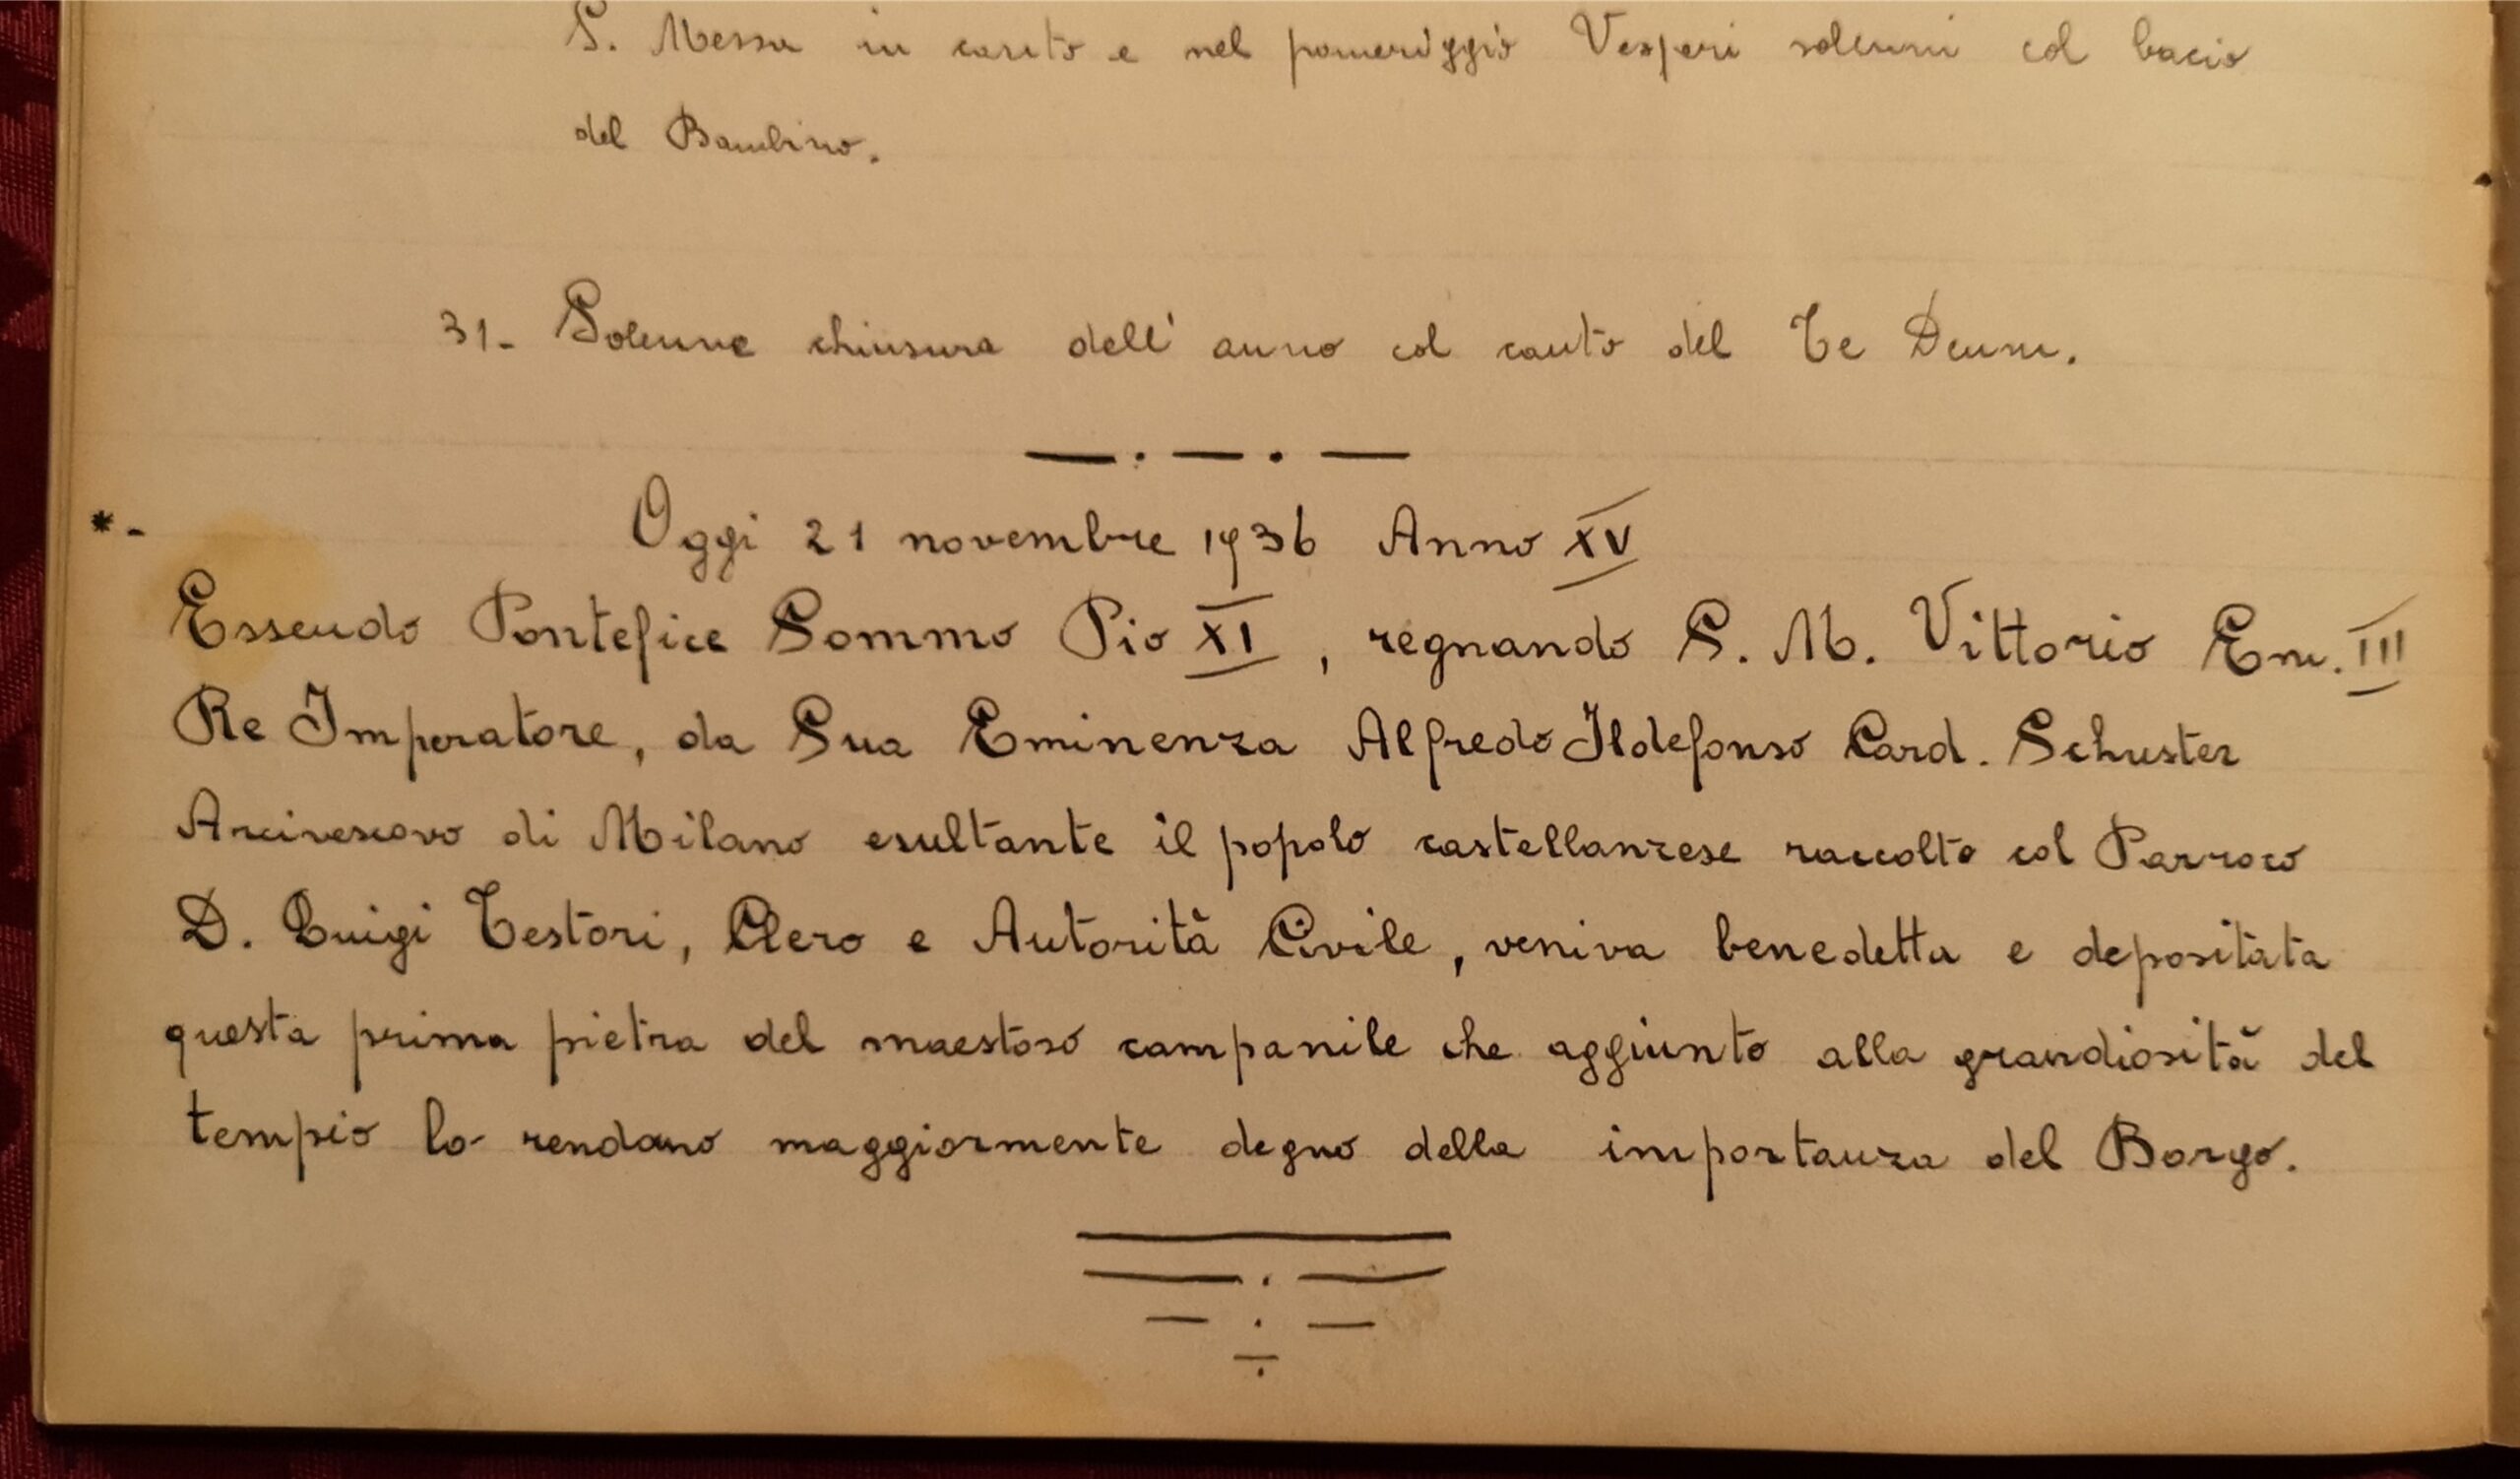 S. Messa in canto e nel pomeriggio Vesperi solenni col bacio
del Bambino.
31- Solenne chiusura dell' anno col canto del Te Deum.
*- Oggi 21 novembre 1936 Anno XV
Essendo Pontefice Sommo Pio XI, regnando S. M. Vittorio Em. III
Re Imperatore, da Sua Eminenza Alfredo Ildefonso Card. Schuster
Arcivescovo di Milano esultante il popolo castellanzese raccolto col Parroco
D. Luigi Testori, Clero e Autorità Civile, veniva benedetta e depositata
questa prima pietra del maestoso campanile che aggiunto alla grandiosità del
tempio lo rendano maggiormente degno della importanza del Borgo.